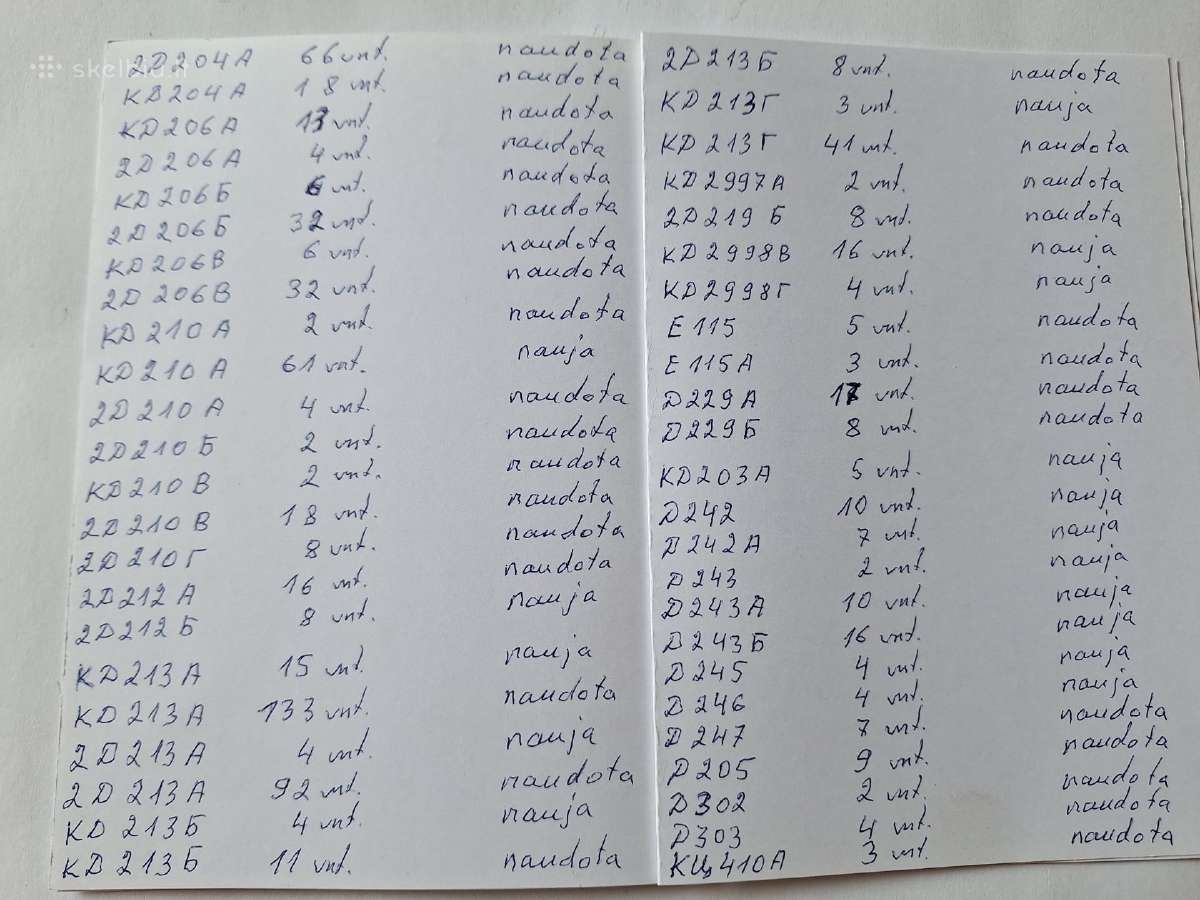 skelbiu.lt
2D204A 66 vnt. naudota
KD204A 18 vnt. naudota
KD206A 13 vnt. naudota
2D206A 4 vnt. naudota
KD206Б 6 vnt. naudota
2D206Б 32 vnt. naudota
KD206B 6 vnt. naudota
2D206B 32 vnt. naudota
KD210A 2 vnt. naudota
KD210A 61 vnt. nauja
2D210A 4 vnt. naudota
2D210Б 2 vnt. naudota
KD210B 2 vnt. naudota
2D210B 18 vnt. naudota
2D210Г 8 vnt. naudota
2D212A 16 vnt. naudota
2D212Б 8 vnt. nauja
KD213A 15 vnt. nauja
KD213A 133 vnt. naudota
2D213A 4 vnt. nauja
2D213A 92 vnt. naudota
KD213Б 4 vnt. nauja
KD213Б 11 vnt. naudota
2D213Б 8 vnt. naudota
KD213Г 3 vnt. nauja
KD213Г 41 vnt. naudota
KD2997A 2 vnt. naudota
2D219Б 8 vnt. naudota
KD2998B 16 vnt. nauja
KD2998Г 4 vnt. nauja
E115 5 vnt. naudota
E115A 3 vnt. naudota
D229A 17 vnt. naudota
D229Б 8 vnt. naudota
KD203A 5 vnt. nauja
D242 10 vnt. nauja
D242A 7 vnt. nauja
D243 2 vnt. nauja
D243A 10 vnt. nauja
D243Б 16 vnt. nauja
D245 4 vnt. nauja
D246 4 vnt. nauja
D247 7 vnt. naudota
D205 9 vnt. naudota
D302 2 vnt. naudota
D303 4 vnt. naudota
КЦ410А 3 vnt. naudota